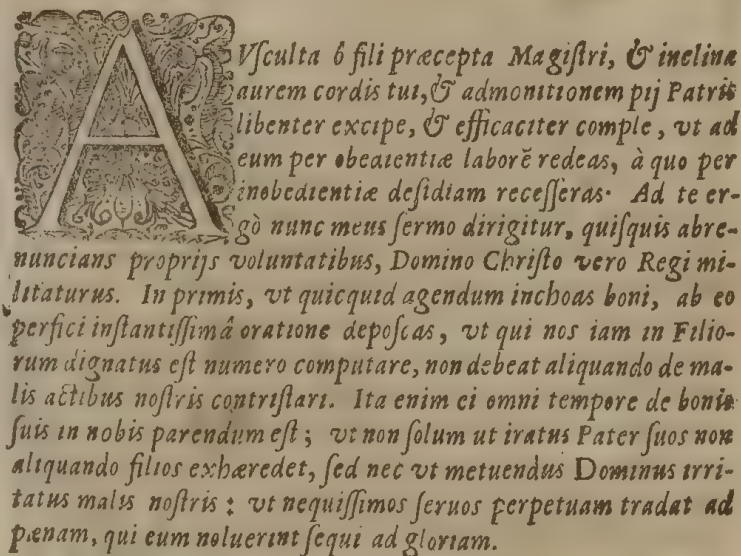 AVſculta ô fili præcepta Magiſtri, & inclina
aurem cordis tui, & admonitionem pij Patris
libenter excipe, & efficaciter comple, vt ad
eum per obedientiæ laborē redeas, à quo per
inobedientiæ deſidiam receſſeras. Ad te er-
gò nunc meus ſermo dirigitur, quiſquis abre-
nuncians proprijs voluntatibus, Domino Chriſto vero Regi mi-
litaturus. In primis, vt quicquid agendum inchoas boni, ab eo
perfici inſtantiſſimâ oratione depoſcas, vt qui nos iam in Filio-
rum dignatus eſt numero computare, non debeat aliquando de ma-
lis actibus noſtris contriſtari. Ita enim ei omni tempore de bonis
ſuis in nobis parendum eſt; vt non ſolum ut iratus Pater ſuos non
aliquando filios exhæredet, ſed nec vt metuendus Dominus irri-
tatus malis noſtris: vt nequiſſimos ſeruos perpetuam tradat ad
pœnam, qui eum noluerint ſequi ad gloriam.